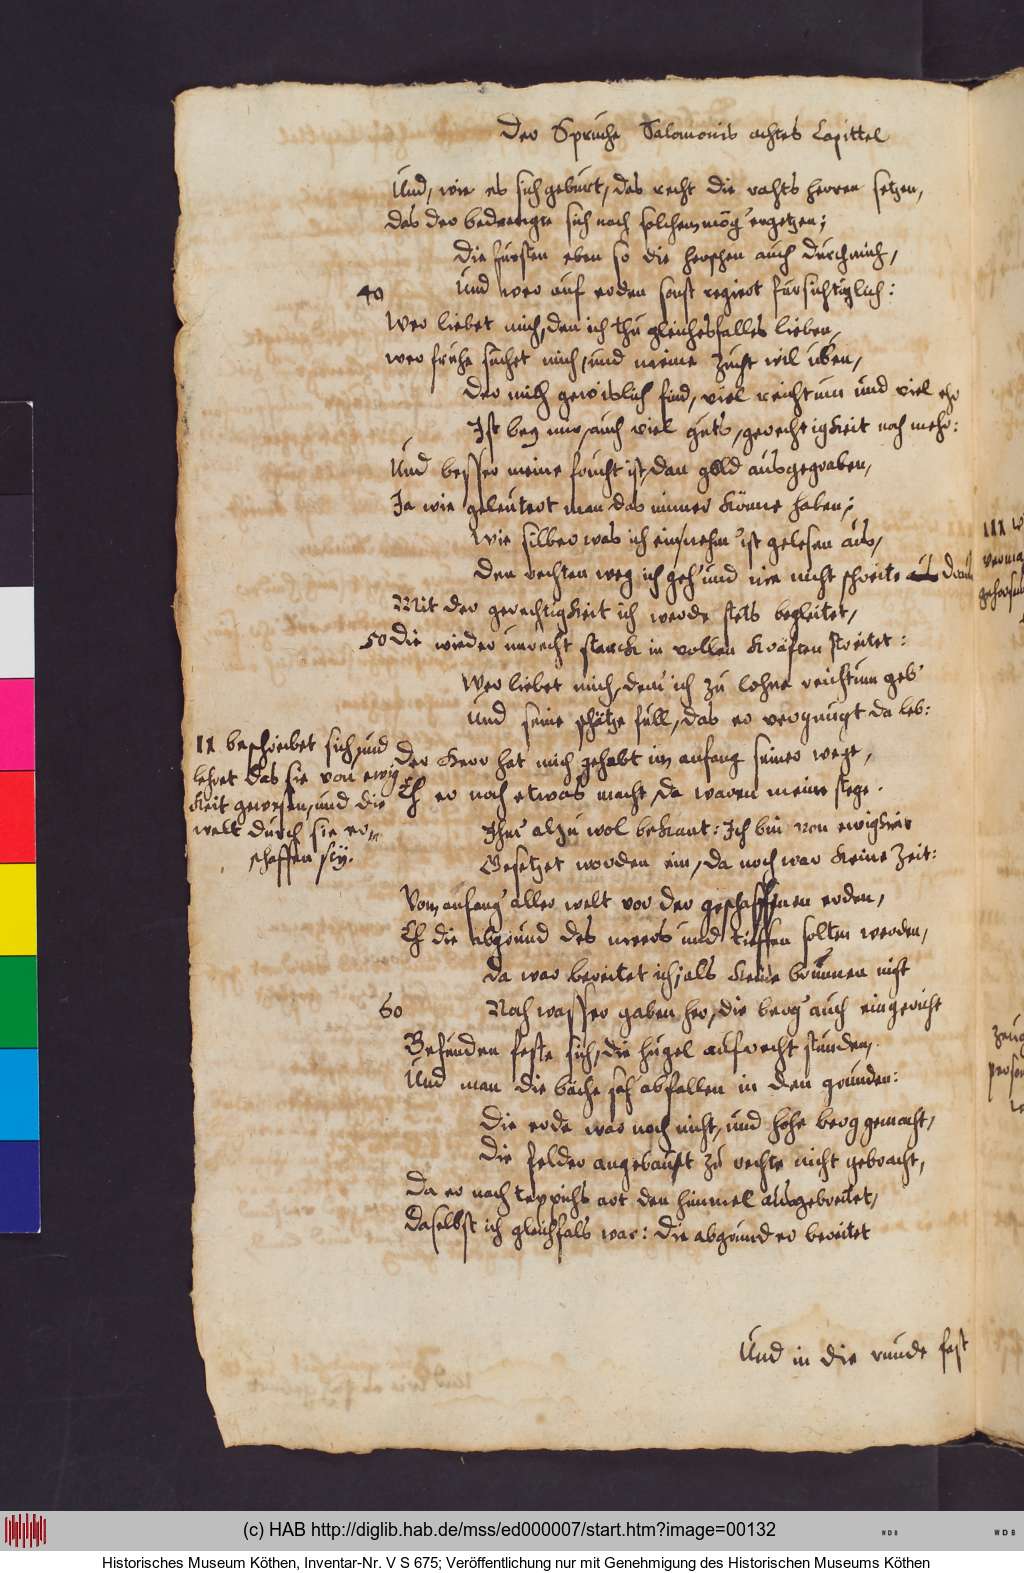 Der Spruche Salomonis achtes Capittel
Und, wie es sich geburt, das recht die rahts herren setzen,
das der bedrengte sich nach solchem mög ergetzen;
Die fursten eben so die herschen auch durch mich,
40 Und wer auf erden sonst regiert fursichtiglich:
Wer liebet mich, den ich thu gleichesfalles lieben,
wer fruhe suchet mich, und meine zucht wil uben,
Der mich gewislich find, viel reichtum und viel ehr
Ist bey mir, auch viel guts, gerechtigkeit noch mehr:
Und besser meine frucht ist, dan gold ausgegraben,
Ja wie geleutert man das immer könne haben;
Wie silber was ich einnehm ist gelesen aus,
Den rechten weg ich geh' und nie nicht schreite aus draus
Mit der gerechtigkeit ich werde stets begleitet,
50 die wieder unrecht starck in vollen kräften streitet:
Wer liebet mich, dem ich zu lohne reichtum geb'
Und seine schätze full, das er vergnugt da leb:
II beschreibet sich, und
lehret das sie von ewig
keit gewesen, und die
welt durch sie er-
schaffen sey.
Der Herr hat mich gehabt im anfang seiner wege,
Eh er noch etwas macht, da waren meine stege
Ihm alzu wol bekant: Ich bin von ewigkeit
Gesetzet worden ein, da noch war keine zeit:
Vom anfang aller welt vor der geschaffenen erden,
Eh die abgrund des meers und tieffen solten werden,
Da war bereitet ich; als keine brunnen nicht
60 Noch wasser gaben her, die berg' auch eingericht
Befunden feste sich, die hugel aufrecht stunden,
Und man die bäche sah abfallen in den grunden:
Die erde war noch nicht, und hohe berg gemacht,
Die felder angebauht zu rechte nicht gebracht,
Da er nach teppichs art den himmel ausgebreitet,
Daselbst ich gleichfals war: Die abgrund er bereitet
Und in die runde fast
III
(c) HAB http://diglib.hab.de/mss/ed000007/start.htm?image=00132
WDB
WDB
Historisches Museum Köthen, Inventar-Nr. V S 675; Veröffentlichung nur mit Genehmigung des Historischen Museums Köthen